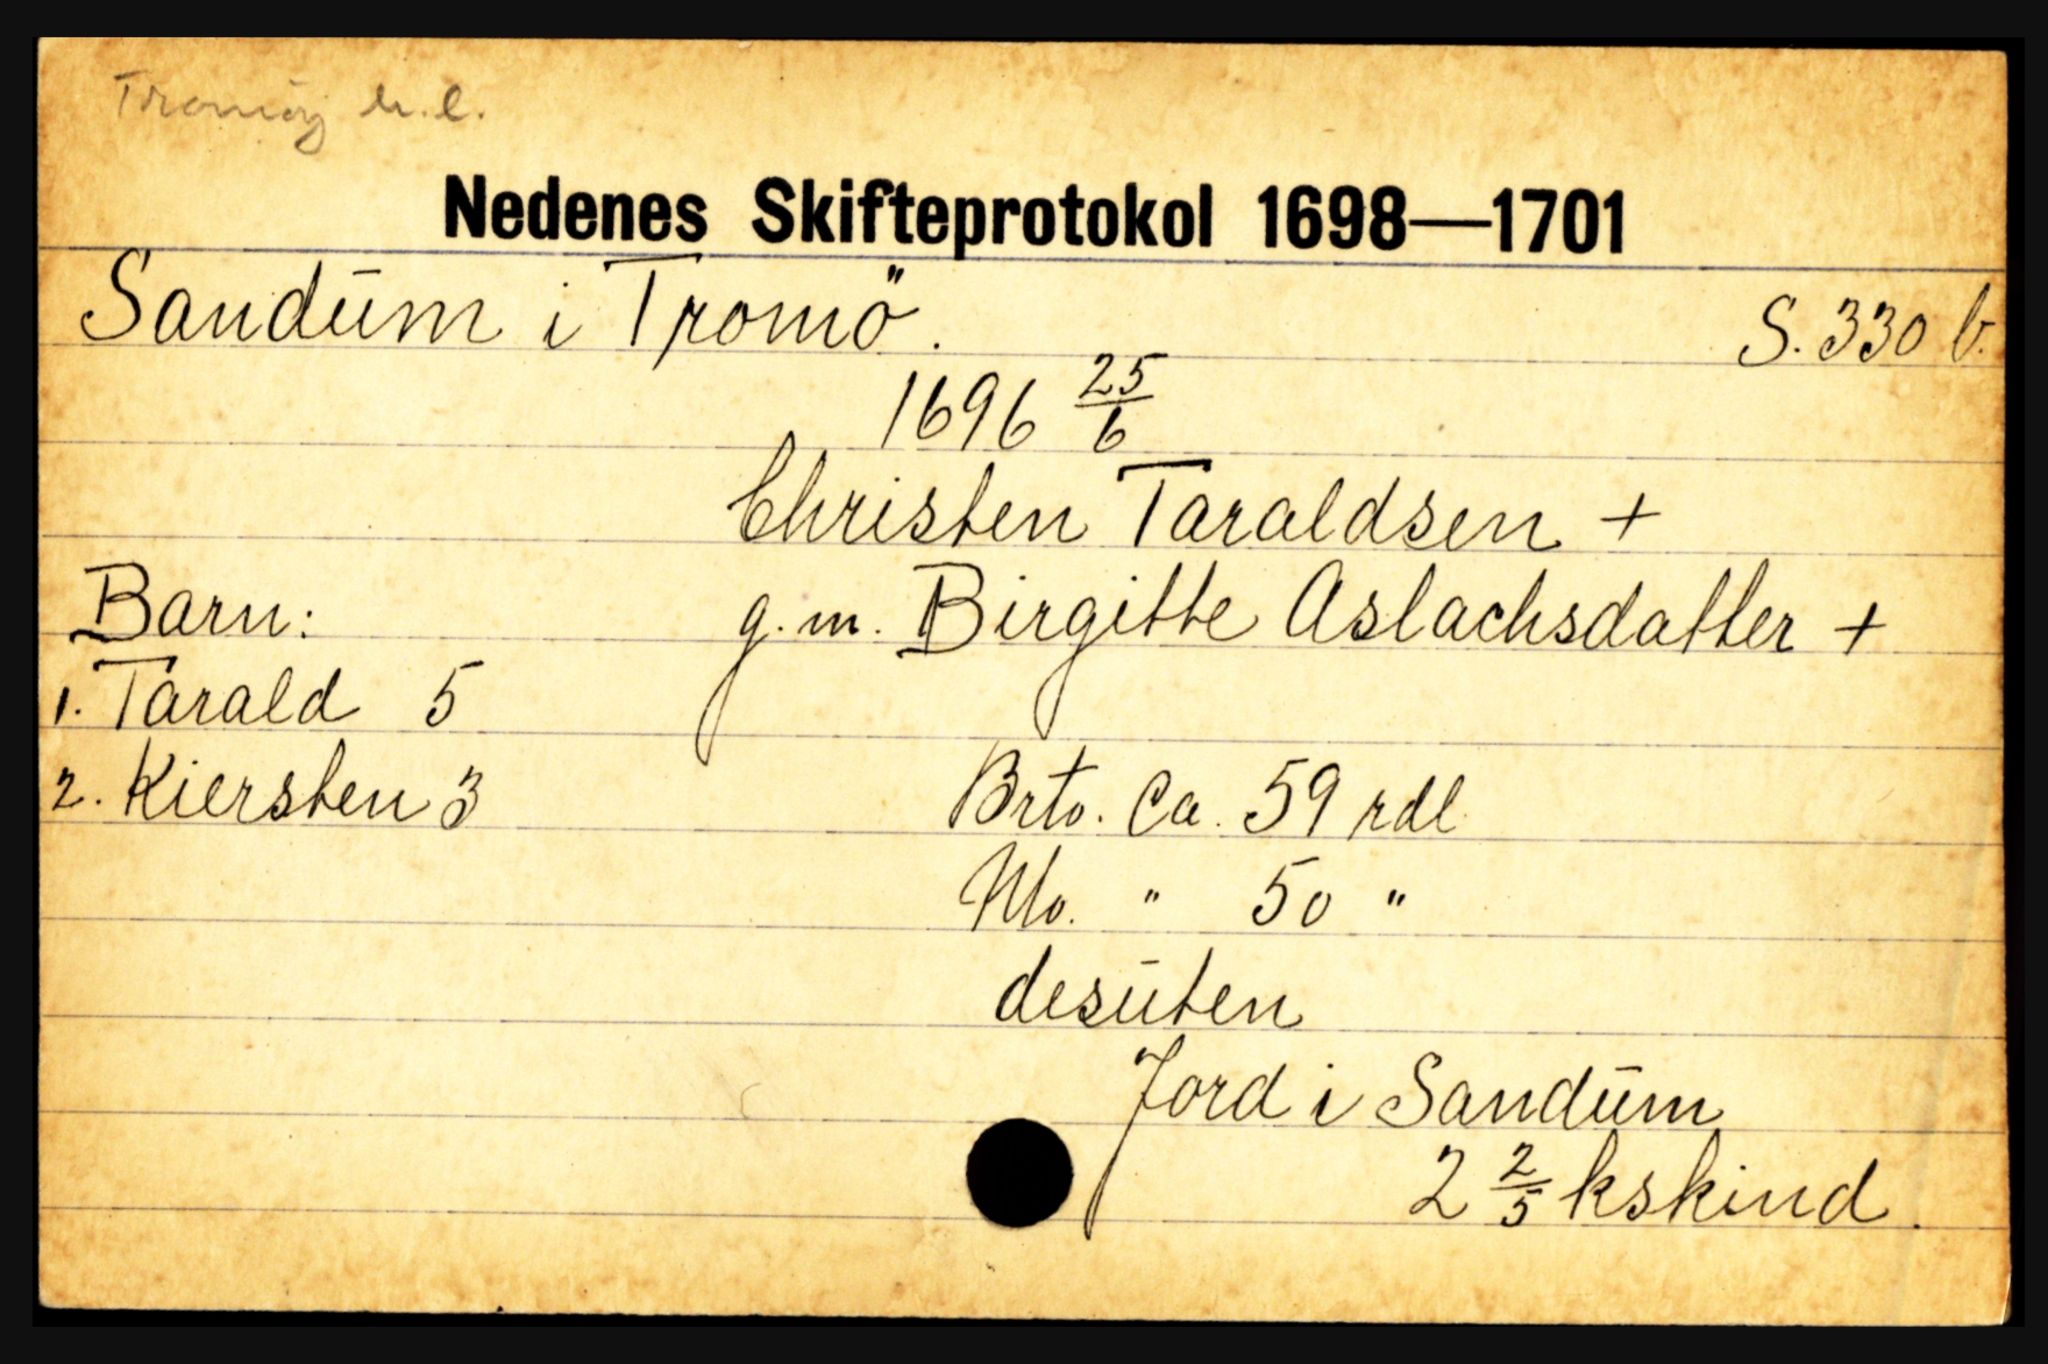 Tromöy h.l.
Nedenes Skifteprotokol 1698—1701
Sandūm i Tromö. S. 330 b.
1696 25/6
Christen Taraldsen +
Barn: g. m. Birgitte Aslachsdatter +
1. Tarald 5
2. Kiersten 3 Brto. Ca. 59 rdl.
Nto. " 50 "
desūten
Jord i Sandūm
2 2/5 kskind.